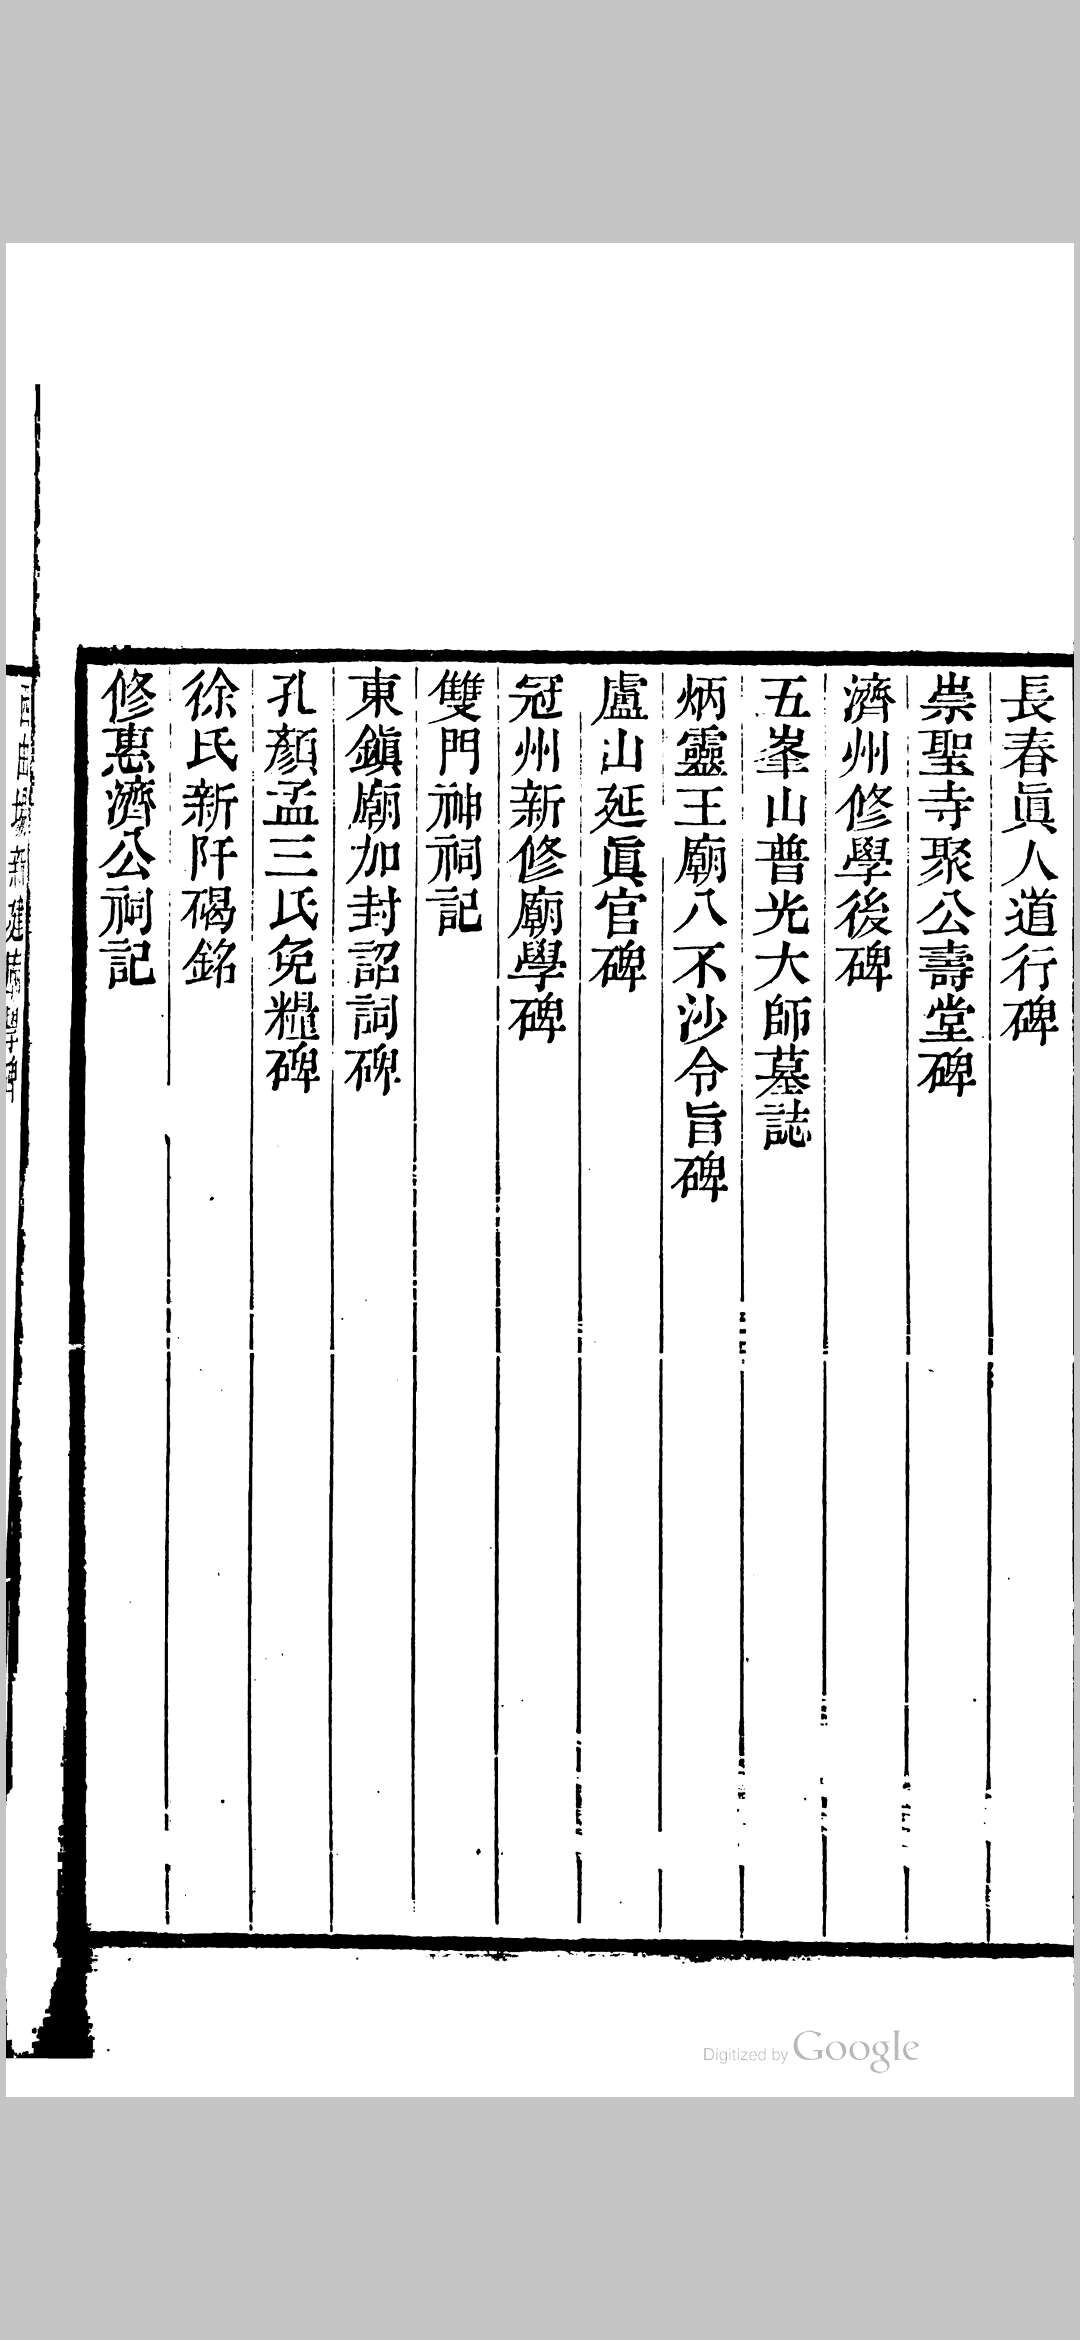 長春眞人道行碑
崇聖寺聚公壽堂碑
濟州修學後碑
五峯山普光大師墓誌
炳靈王廟八不沙令旨碑
盧山延眞官碑
冠州新修廟學碑
雙門神祠記
東鎭廟加封詔詞碑
孔顏孟三氏免糧碑
徐氏新阡碣銘
修惠濟公祠記
新建
學碑
Digitized by Google